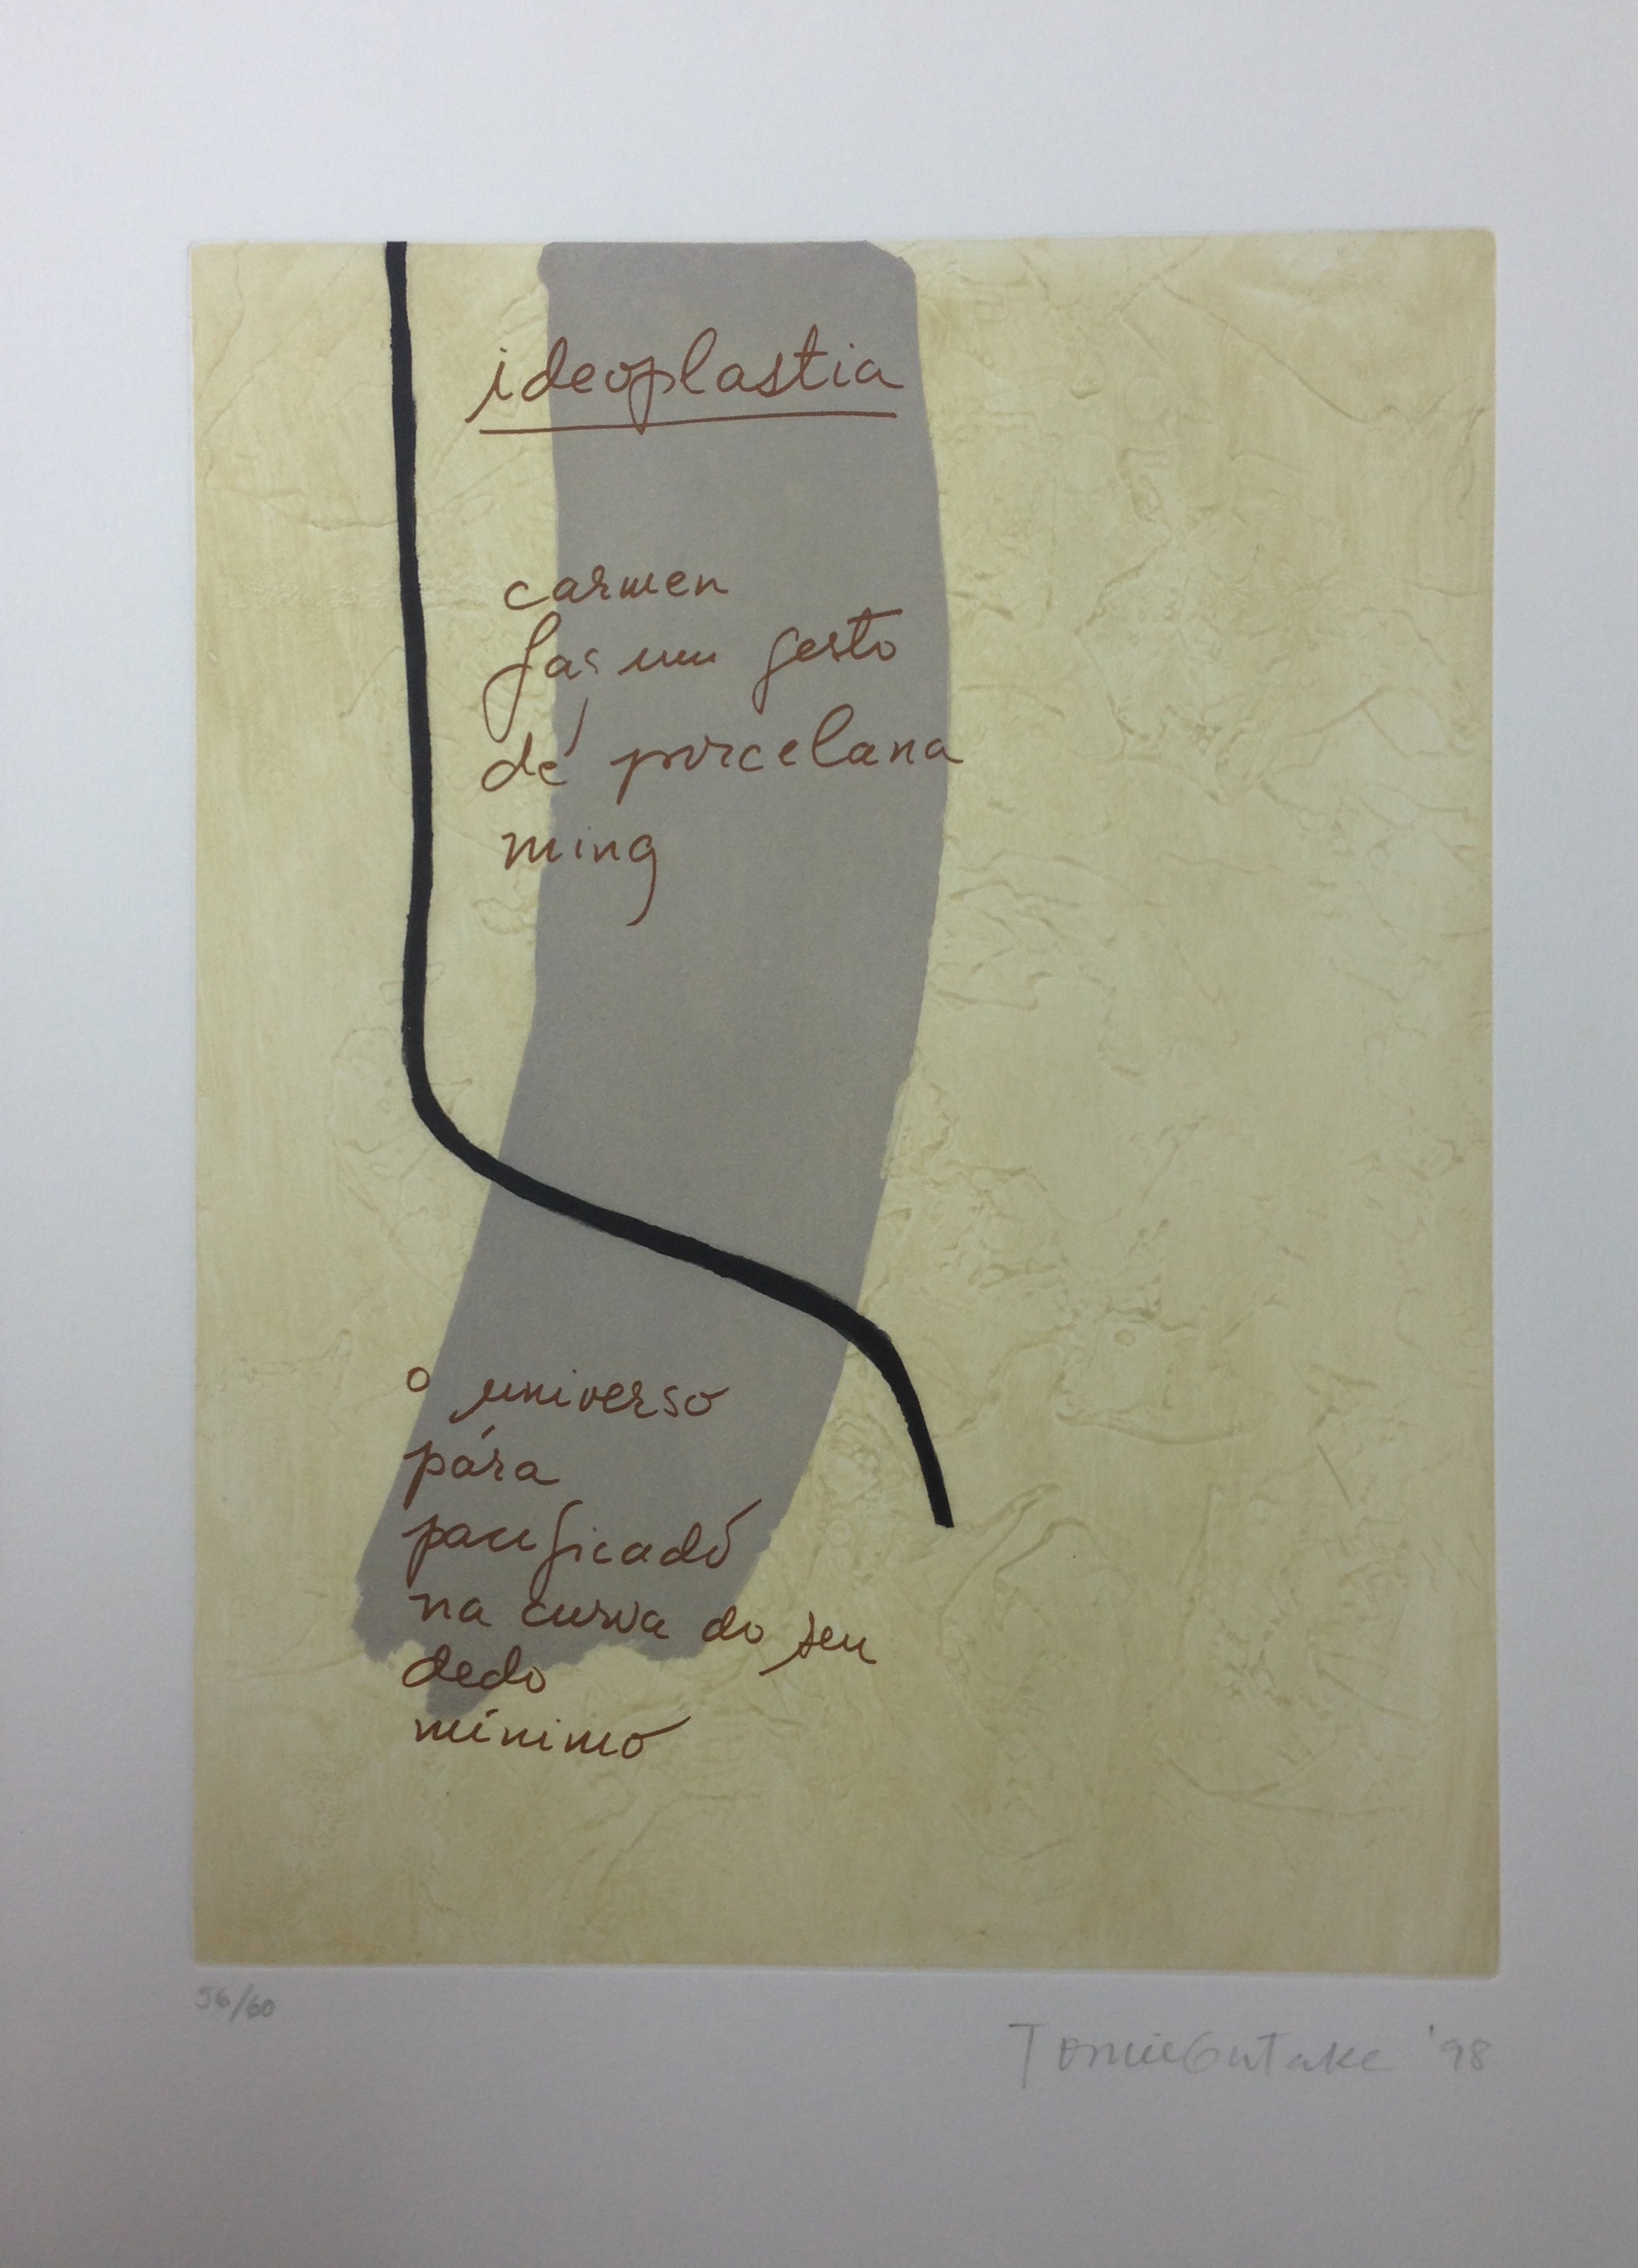 ideoplastia
carmen
faz um gesto
de porcelana
ming
o universo
pára
pacificado
na curva do seu
dedo
mínimo
56/60
Tomie Ohtake '98